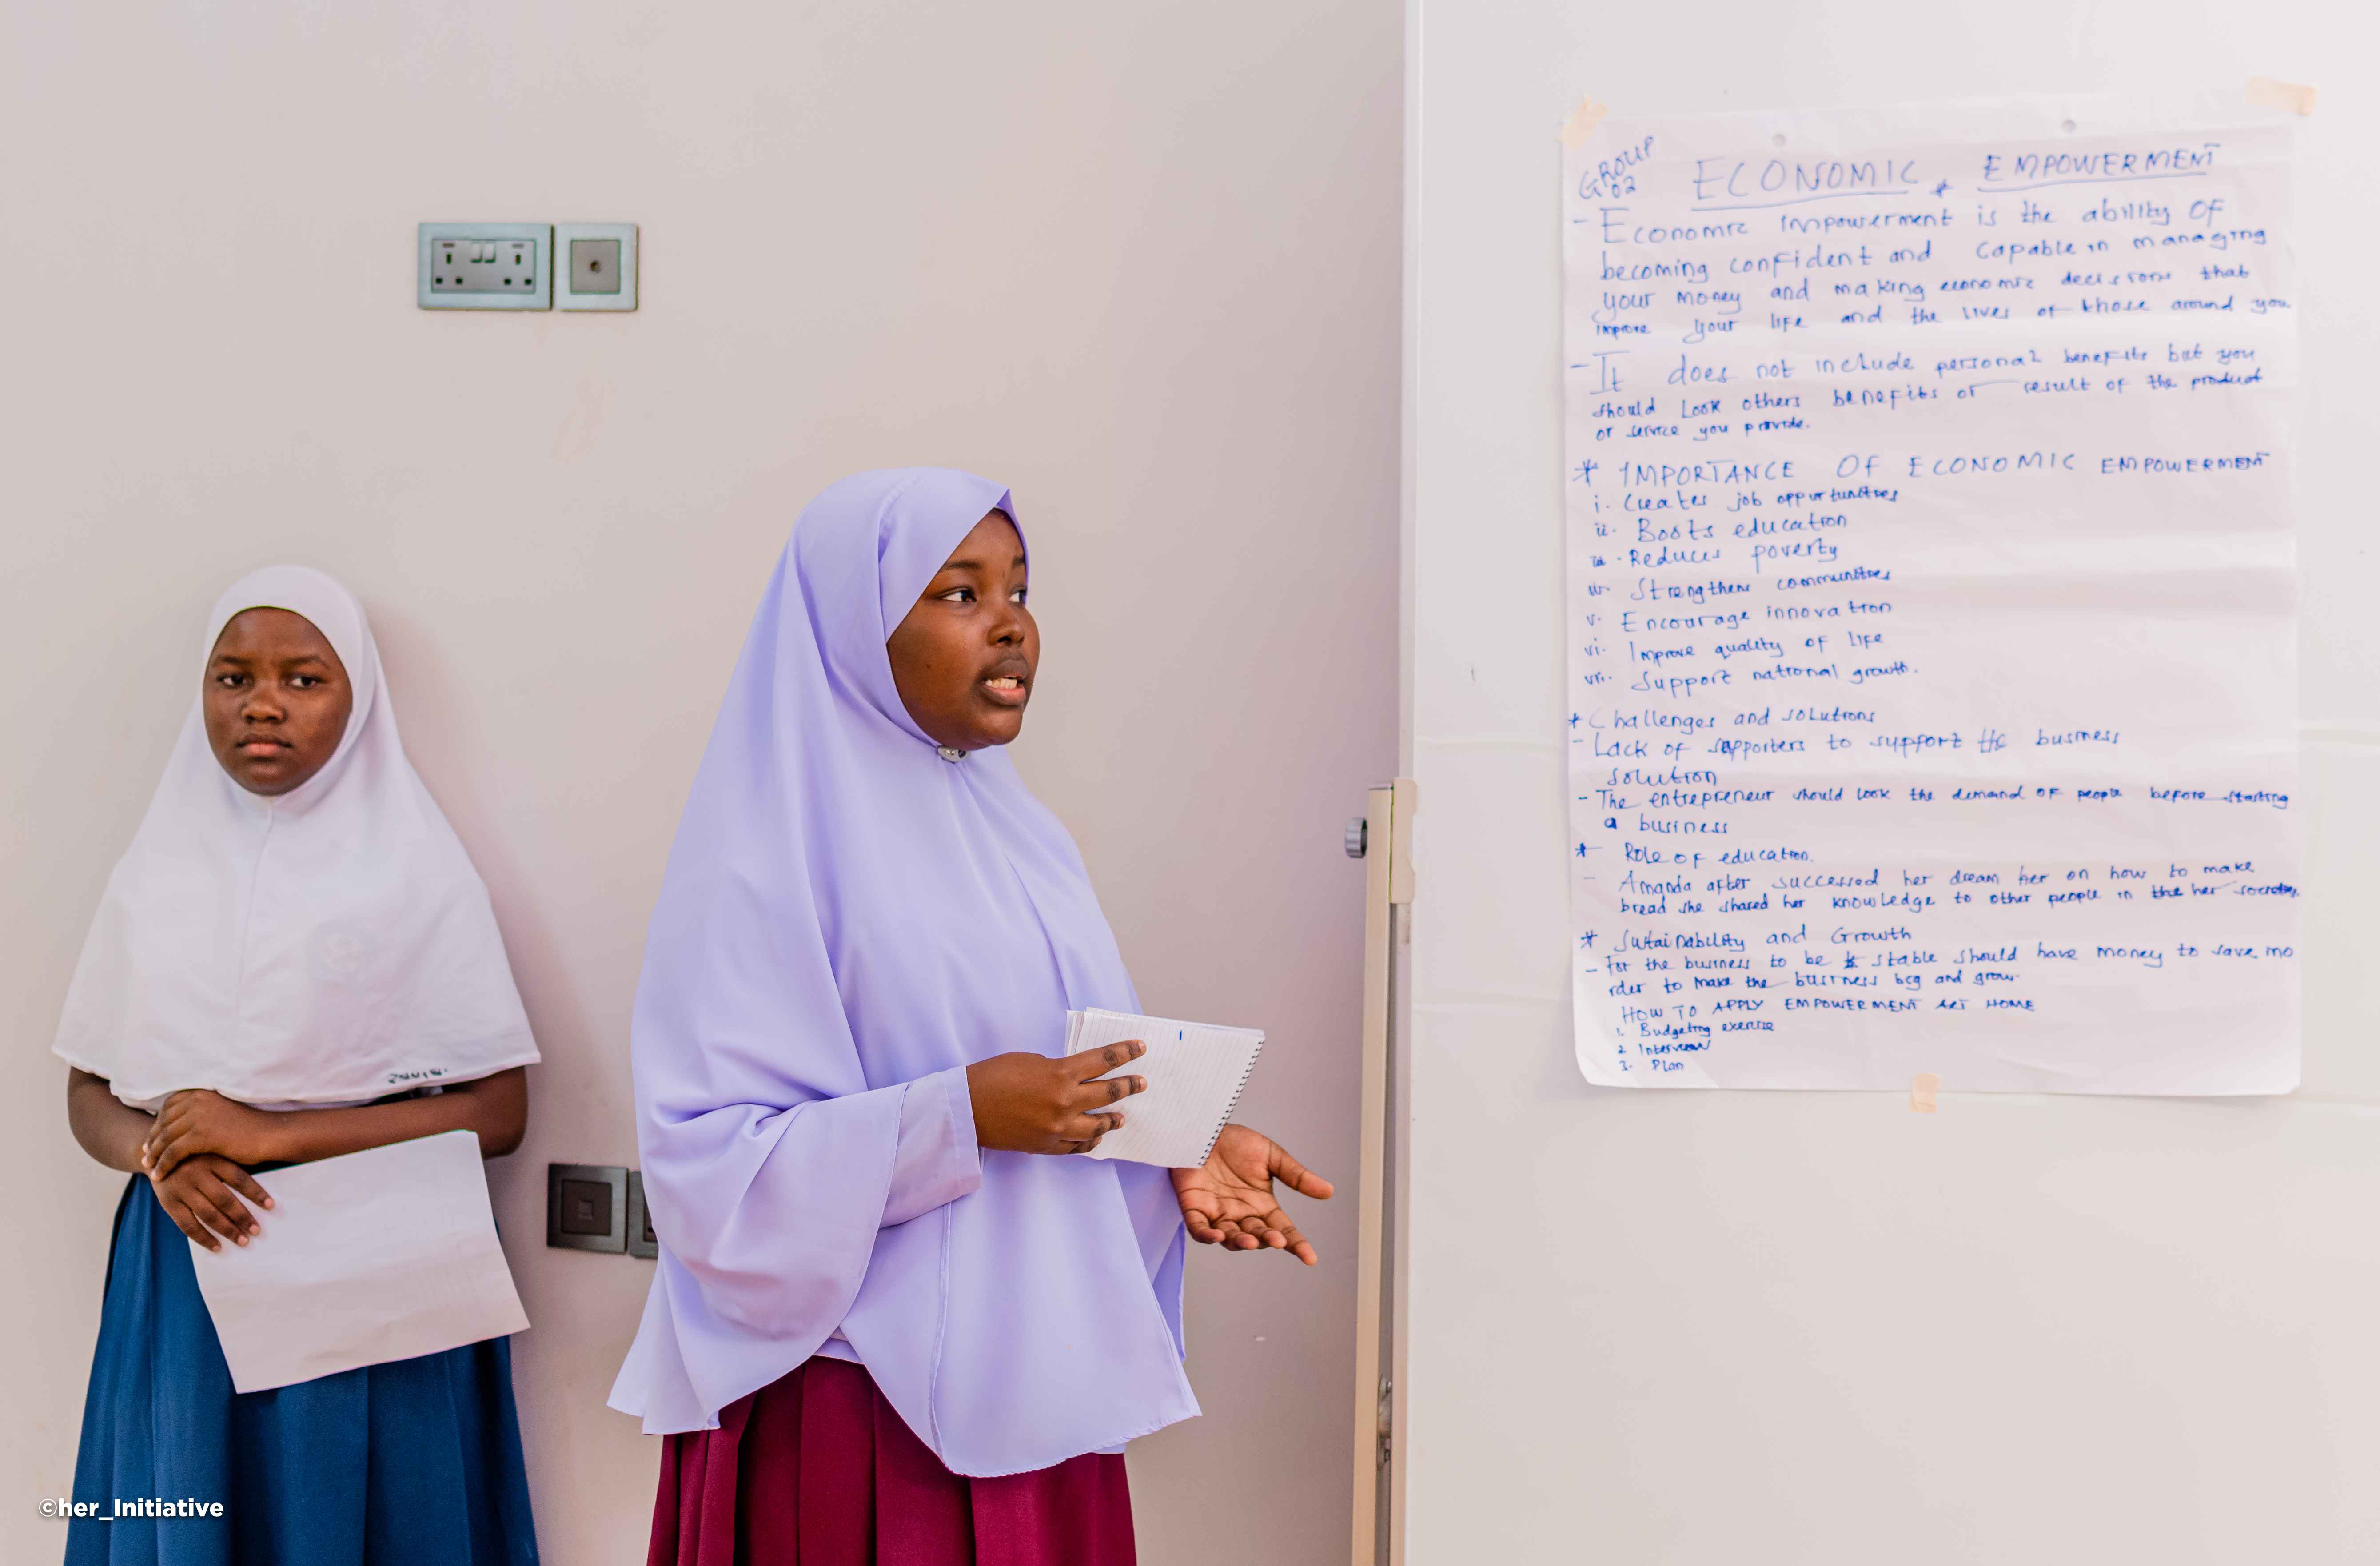 GROUP
02
ECONOMIC EMPOWERMENT
- Economic impowerment is the ability of
becoming confident and capable in managing
your money and making economic decisions that
improve your life and the lives of those around you.
- It does not include personal benefits but you
should look others benefits or result of the product
or service you provide.
* IMPORTANCE OF ECONOMIC EMPOWERMENT
i. Creates job opportunities
ii. Boosts education
iii. Reduces poverty
iv. Strengthens communities
v. Encourage innovation
vi. Improve quality of life
vii. Support national growth.
* Challenges and solutions
- Lack of supporters to support the business
solution
- The entrepreneur should look the demand of people before starting
a business
* Role of education.
- Amanda after successed her dream her on how to make
bread she shared her knowledge to other people in the her society.
* Sustainability and Growth
- For the business to be stable should have money to save ino
rder to make the business big and grow.
HOW TO APPLY EMPOWERMENT AT HOME
1. Budgeting exercise
2. Interview
3. Plan
©her_Initiative